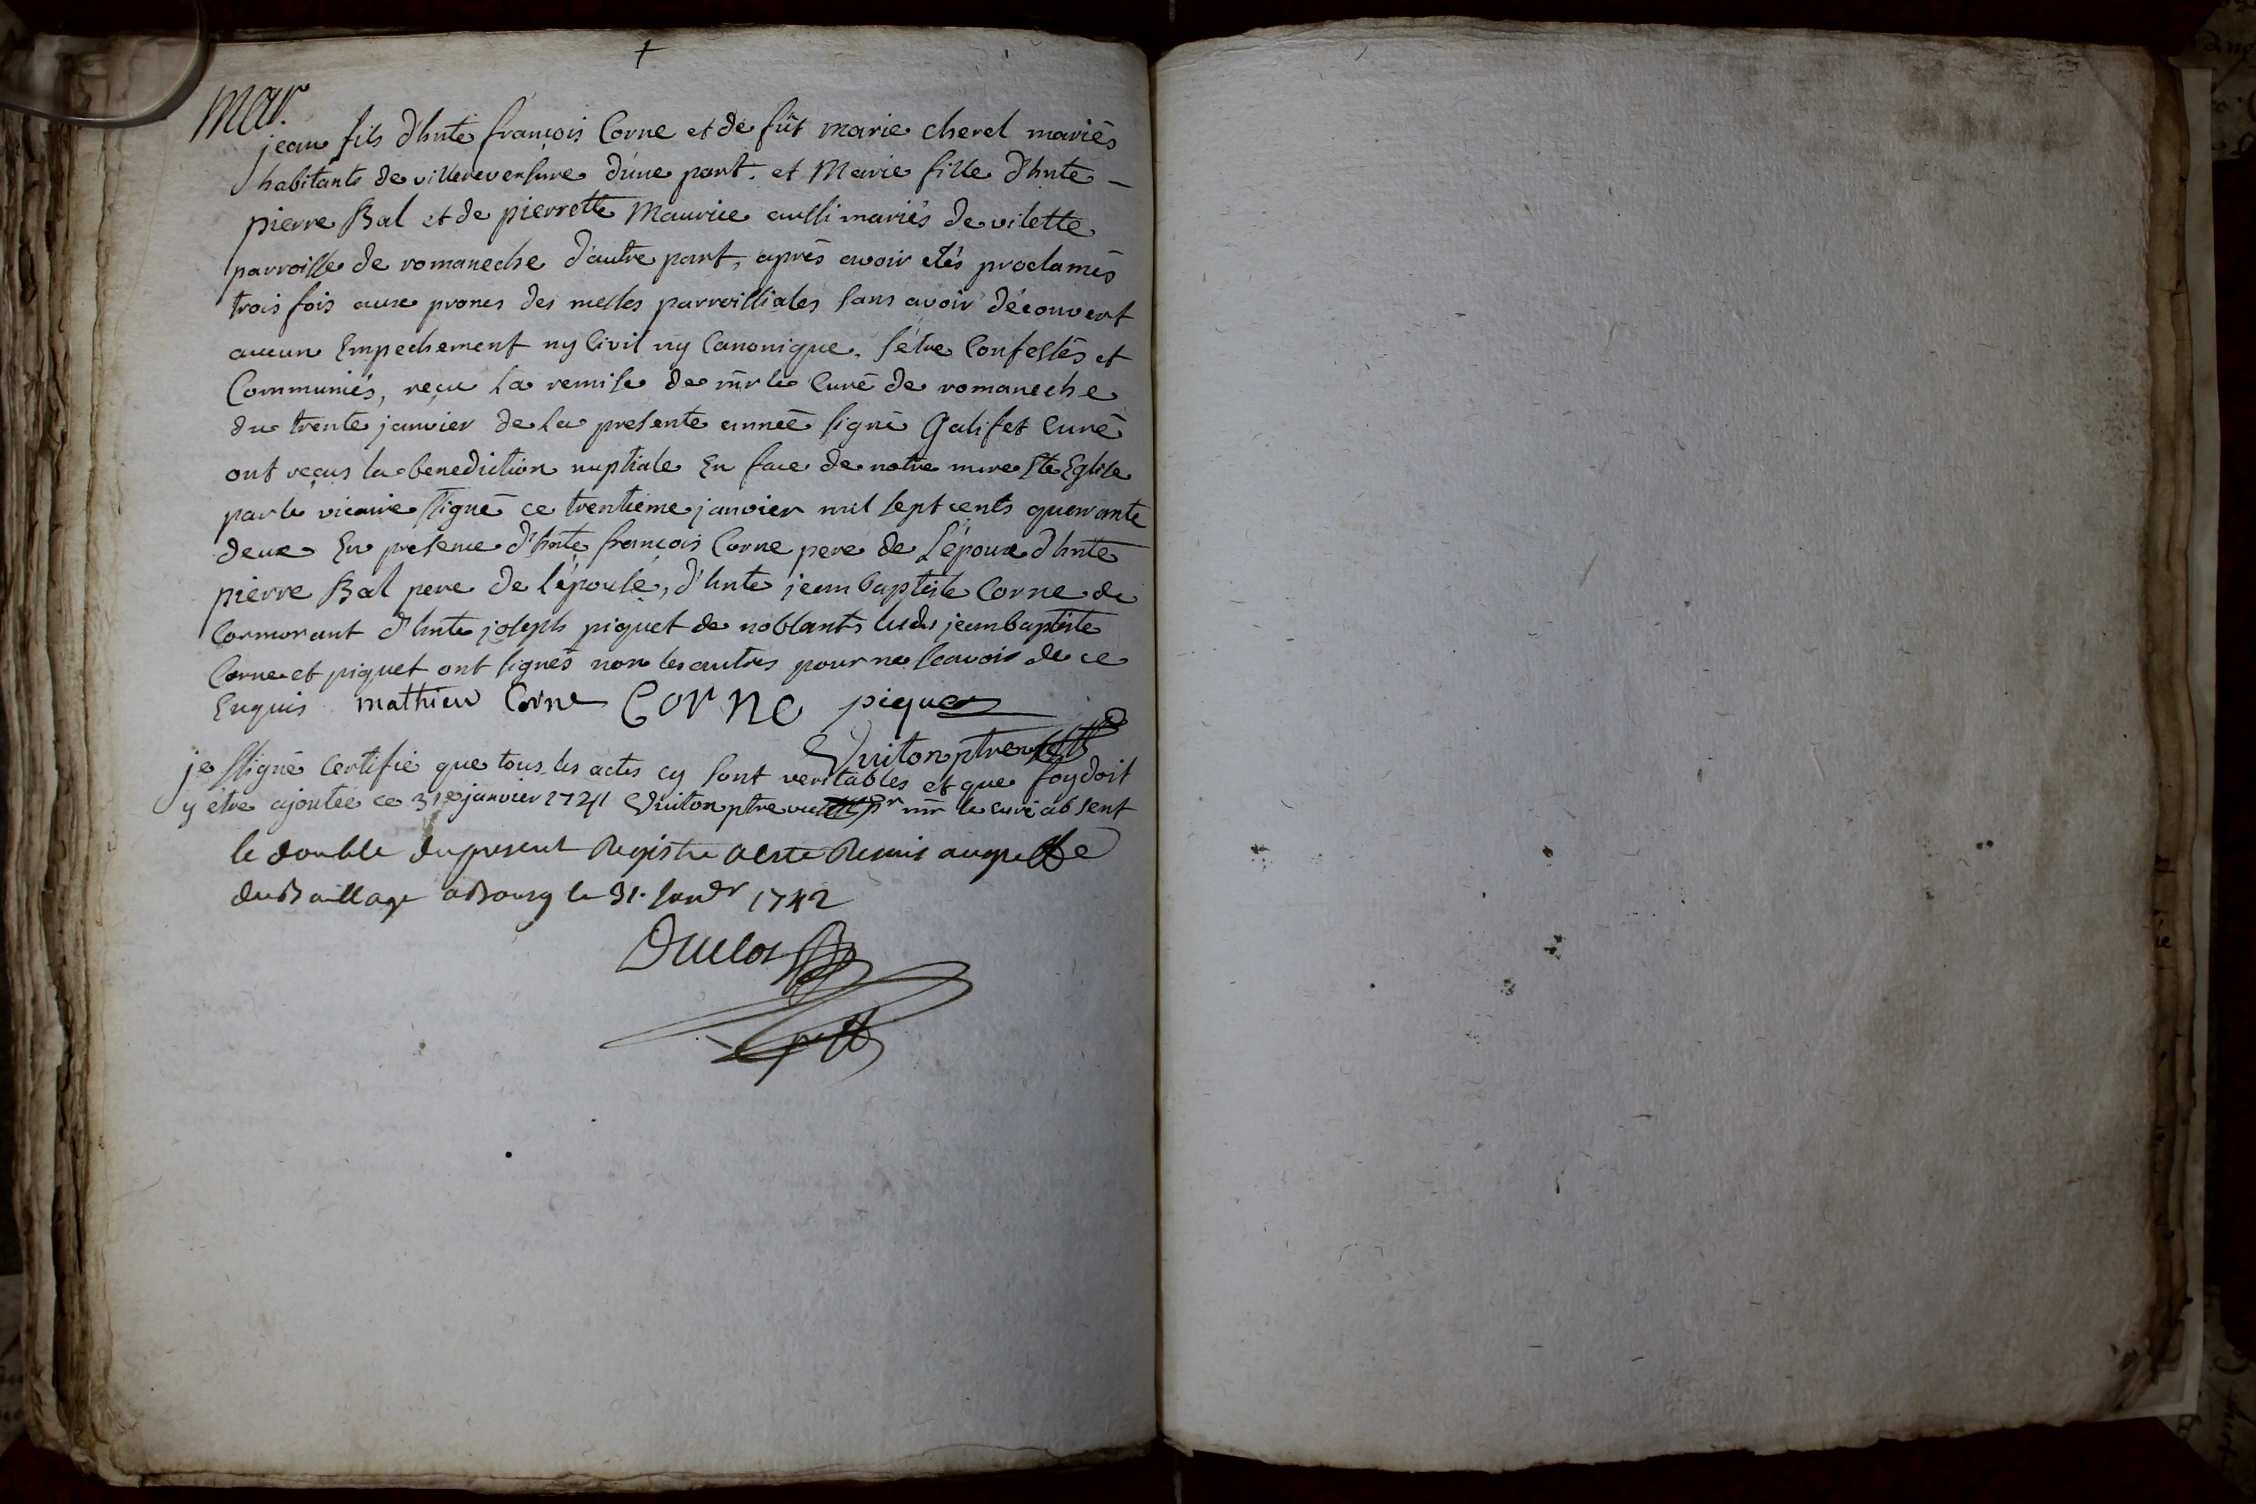 +
mar.
jean fils d'hnte françois Corne et de fût marie cherel mariés
habitants de villereversure d'une part. et Marie fille d'hnte
pierre Bal et de pierrette Maurice aussi mariés de vilette
parroisse de romaneche d'autre part, après avoir étés proclamés
trois fois aux prones des messes parroissiales sans avoir découvert
aucun Empechement ny Civil ny Canonique, s'étre Confessés et
Communiés, reçu la remise de mr le Curé de romaneche
du trente janvier de la presente année signé Galifet Curé
ont reçus la benediction nuptiale En face de notre mere Ste Eglise
par le vicaire ssigné ce trentieme janvier mil sept cents quarante
deux En presence d'hnte françois Corne pere de L'époux d'hnte
pierre Bal pere de l'épouse, d'hnte jean baptiste Corne de
Cormorant d'hnte joseph piquet de noblants lesds jean baptiste
Corne et piquet ont signés non les autres pour ne sçavoir de ce
Enquis mathieu Corne Corne piquet
Vuiton ptre
je ssigné Certifie que tous les actes cy sont veritables et que foy doit
y étre ajoutée ce 31e janvier 1741 Vuiton ptre pr mr le curé absent
le double du present Registre a esté Remis au greffe
du Baillage a Bourg le 31. Janvr 1742